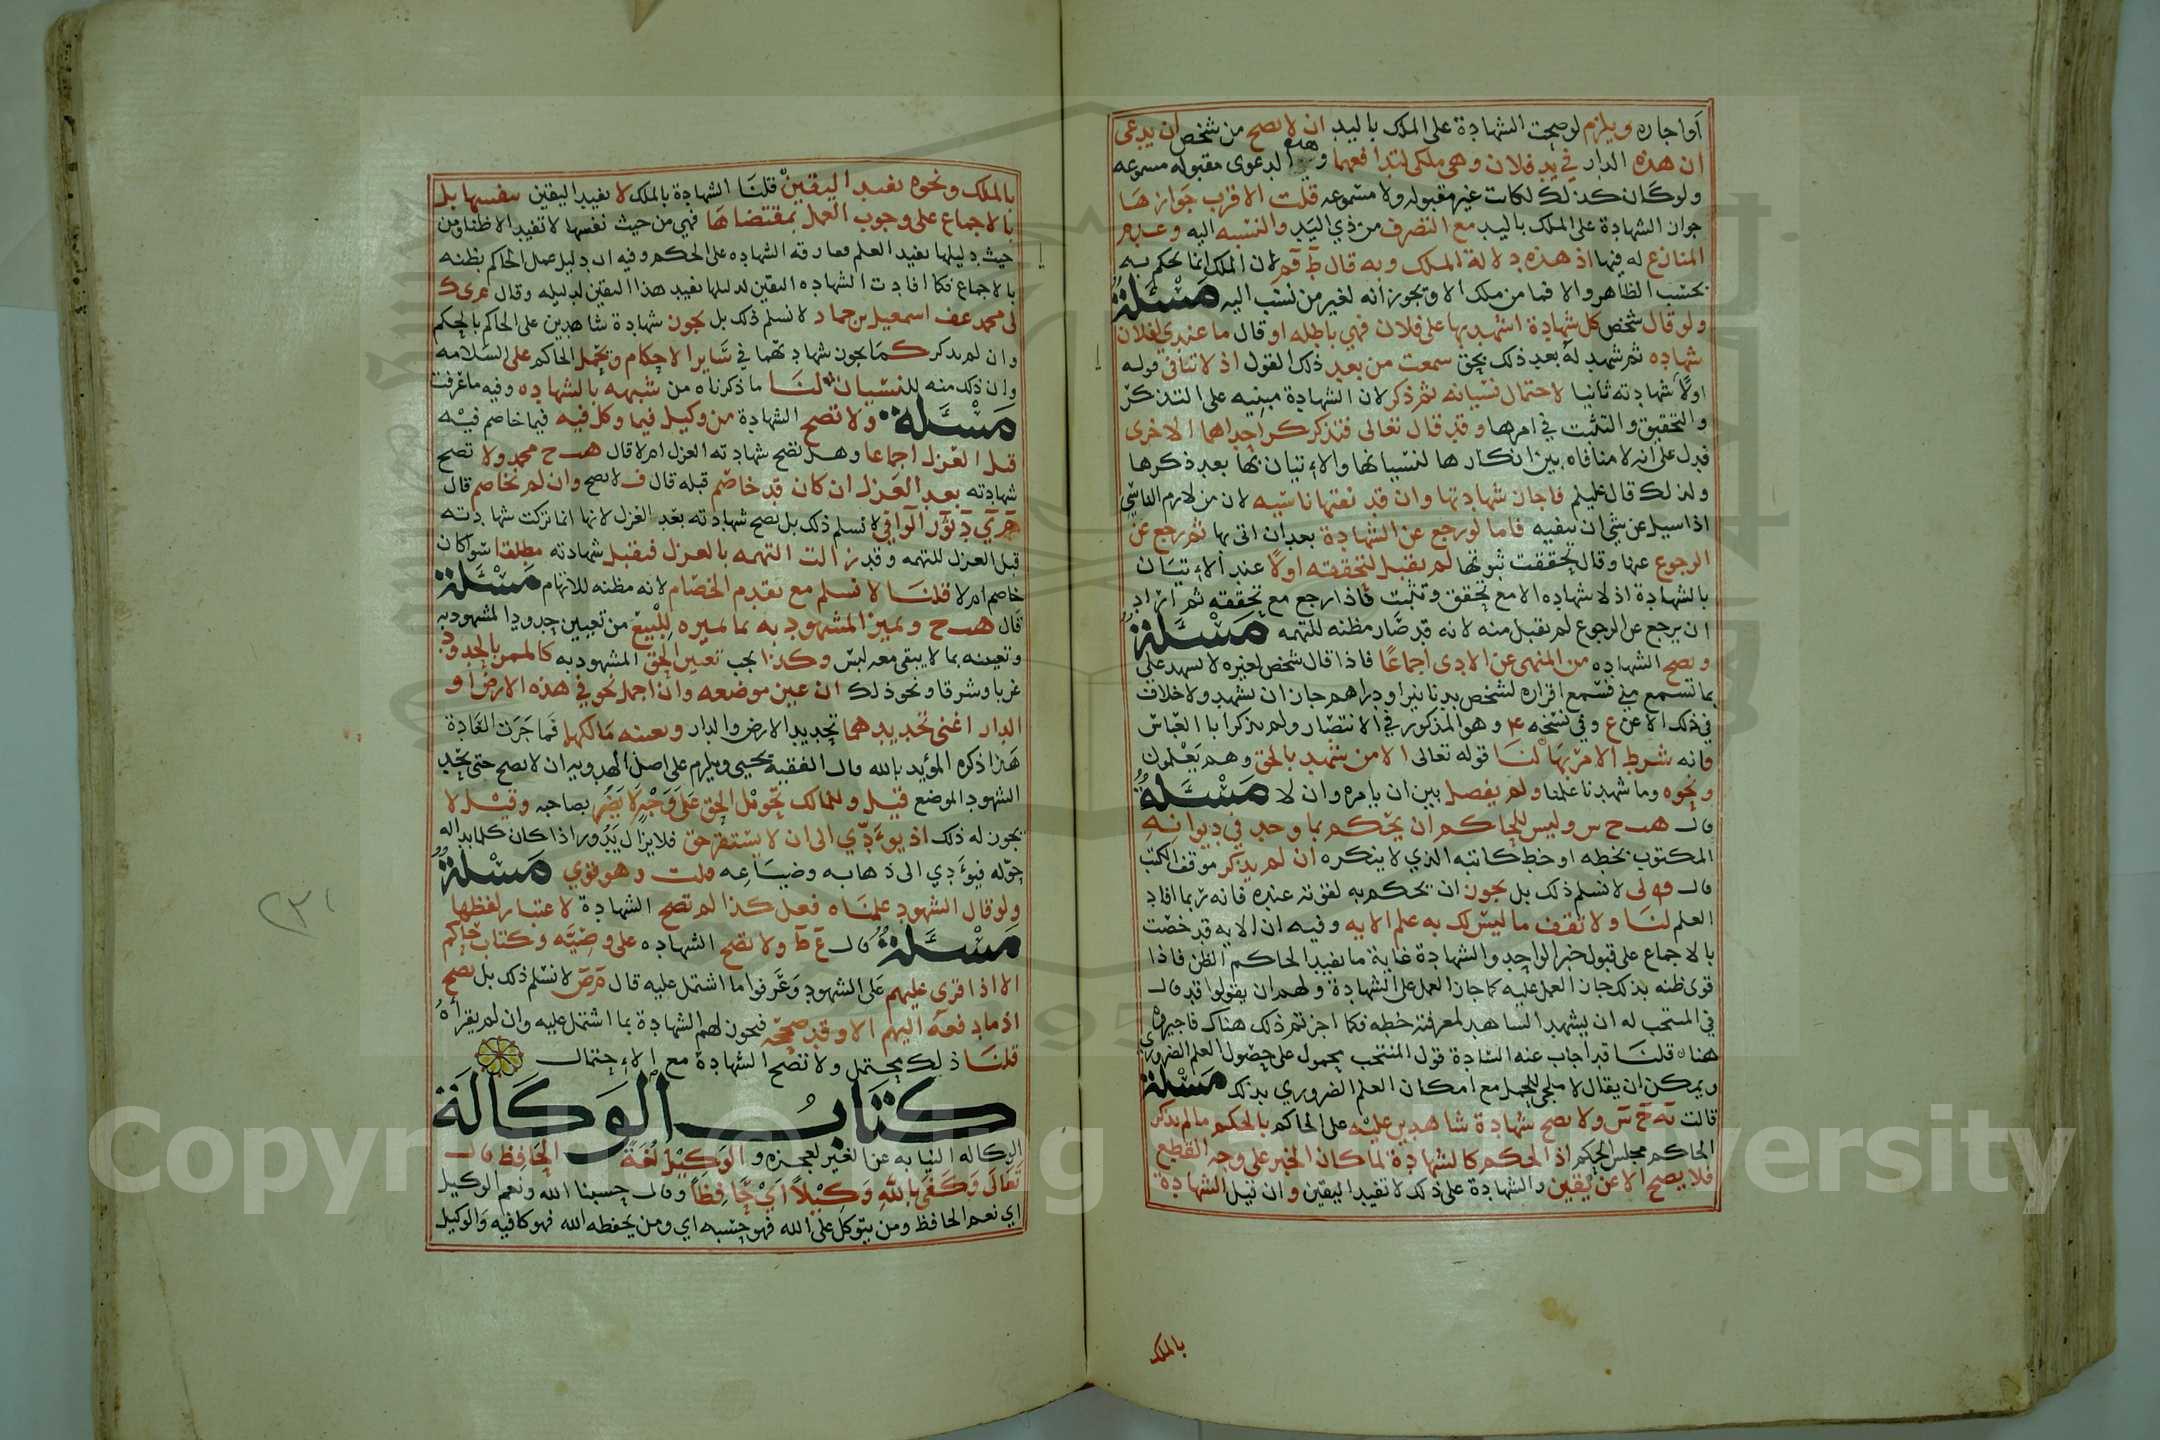 أو اجاره ويلزم لو صحت الشهادة على الملك باليد ان لا تصح من شخص ان يدعى
ان هذه الدار في يد فلان وهي ملكي لتدافعهما وهذه الدعوى مقبوله مسموعه
ولو كان كذلك لكانت غير مقبوله ولا مسموعه قلت الاقرب جوازها
جواز الشهادة على الملك باليد مع التصرف من ذي اليد والنسبه اليه وعدم
المنازع له فيها اذ هذه دلالة الملك وبه قال ط قم لان الملك انما يحكم به
بحسب الظاهر والا فما من ملك الا وتجوز انه لغير من نسب اليه مسئلة
ولو قال شخص كل شهادة اشهد بها على فلان فهي باطله او قال ما عندي لفلان
شهاده ثم شهد له بعد ذلك بحق سمعت من بعد ذلك القول اذ لا تنافي قوله
اولا شهادته ثانيا لاحتمال نسيانه ثم ذكر لان الشهادة مبنيه على التذكر
والتحقيق والتثبت في امرها وقد قال تعالى فتذكر احداهما الاخرى
فدل على انه لا منافاه بين انكارها لنسيانها والاتيان بها بعد ذكرها
ولذلك قال عليلم فاجاز شهادتها وان قد نفتها ناسيه لان من لازم الناسي
اذا سيل عن شي ان ينفيه فاما لو رجع عن الشهادة بعد ان اتى بها ثم رجع عن
الرجوع عنها وقال تحققت ثبوتها لم يقبل لتحققه اولا عند الاتيان
بالشهادة اذ لا شهاده الا مع تحقق وتثبت فاذا رجع مع تحققه ثم اراد
ان يرجع عن الرجوع لم تقبل منه لانه قد صار مظنه للتهمه مسئلة
وتصح الشهاده من المنهى عن الادى اجماعا فاذا قال شخص لغيره لا تشهد على
بما تسمع مني فسمع اقراره لشخص بدنانير او دراهم جاز ان يشهد ولا خلاف
في ذلك الا عن ع وفي نسخه وهو المذكور في الانتصار ولم يذكر ابا العباس
فانه شرط الامر بها لنا قوله تعالى الا من شهد بالحق وهم يعلمون
ونحوه وما شهدنا علمنا ولم يفصل بين ان يامره وان لا مسئلة
قال هب ح س وليس للحاكم ان يحكم بما وجد في ديوانه
المكتوب بخطه او خط كاتبه الذي لا ينكره ان لم يذكر موقف الكتب
قال لى لا نسلم ذلك بل يجوز ان يحكم به لقوته عنده فانه ربما افاد
العلم لنا ولا تقف ما ليس لك به علم الايه وفيه ان الايه قد خصت
بالاجماع على قبول خبر الواحد والشهادة غاية ما تفيد الحاكم الظن فاذا
قوى ظنه بذلك جاز العمل عليه كما جاز العمل على الشهادة ولهم ان يقولوا قد قال
في المنتخب له ان يشهد الشاهد لمعرفة خطه فكما اجزتم ذلك هناك فاجيزوه
هنا قلنا قد اجاب عنه السادة قول المنتخب محمول على حصول العلم الضروري
ويمكن ان يقال لا ملجي للحمل مع امكان العلم الضروري بذلك مسئلة
قالت ح س ولا يصح شهادة شاهدين عليه على الحاكم بالحكم ما لم يذكر
الحاكم مجلس الحكم اذ الحكم كالشهادة لما كان الخبر على وجه القطع
فلا يصح الا عن يقين والشهادة على ذلك لا تفيد اليقين وان قيل الشهادة
بالملك
بالملك ونحوه تفيد اليقين قلنا الشهادة بالملك لا تفيد اليقين بنفسها بل
بالاجماع على وجوب العمل بمقتضاها فهي من حيث نفسها لا تفيد الا ظنا ومن
حيث دليلها تفيد العلم ومفارقه الشهاده على الحكم وفيه ان دليل عمل الحاكم بظنه
بالاجماع فكما افادت الشهاده اليقين لدليلها تفيد هذا اليقين لدليله وقال
لى محمد عف اسمعيل بن حماد لا نسلم ذلك بل يجوز شهادة شاهدين على الحاكم بالحكم
وان لم يذكر كما يجوز شهادتهما في ساير الاحكام وتحمل الحاكم على السلامه
وان ذلك منه للنسيان لنا ما ذكرناه من شبهه بالشهاده وفيه ما عرفت
مسئلة ولا تصح الشهادة من وكيل فيما وكل فيه فيما خاصم فيه
قبل العزل اجماعا وهل تصح شهادته العزل ام لا قال هب ح محمد ولا تصح
شهادته بعد العزل ان كان قد خاصم قبله قال ف لا تصح وان لم يخاصم قال
الوافي لا نسلم ذلك بل تصح شهادته بعد العزل لانها انما تركت شهادته
قبل العزل للتهمه وقد زالت التهمه بالعزل فتقبل شهادته مطلقا سوا كان
خاصم ام لا قلنا لا نسلم مع تقدم الخصام لانه مظنه للاتهام مسئلة
قال هب ح وتميز المشهود به بما يميزه للبيع من تعيين حدود المشهود به
وتعينه بما لا يبقى معه لبس وكذا يجب تعيين الحق المشهود به كالممر بالحدود
غربا وشرقا ونحو ذلك ان عين موضعه وان اجمل نحو في هذه الارض او
الدار اغنى تحديدهما تحديد الارض والدار وبعينه مالكها فما جرت العادة
هذا ذكره المؤيد بالله قال الفقيه يحيى ويلزم على اصل الهدويه ان لا تصح حتى يحد
الشهود الموضع قيل وللمالك تحويل الحق على وجه لا يضر بصاحبه وقيل لا
يجوز له ذلك اذ يودي الى ان لا يستقر حق فلا يزال يدور اذا كان كلما بدا له
حوله فيودي الى ذهابه وضياعه قلت وهو قوي مسئلة
ولو قال الشهود علمناه فعل كذا لم تصح الشهادة لاعتبار لفظها
مسئلة قال ع ط ولا تصح الشهاده على وصيه وكتاب حاكم
الا اذا قرئ عليهم على الشهود وعرفوا ما اشتمل عليه قال لا نسلم ذلك بل تصح
اذ ما دفعه اليهم الا وقد صححه فيجوز لهم الشهادة بما اشتمل عليه وان لم يقراه
قلنا ذلك يحتمل ولا تصح الشهادة مع الاحتمال
كتاب الوكالة
الوكاله النيابه عن الغير لعجزه والوكيل لغة الحافظ قال
تعالى وكفى بالله وكيلا اي حافظا وقال حسبنا الله ونعم الوكيل
اي نعم الحافظ ومن يتوكل على الله فهو حسبه اي ومن يحفظه الله فهو كافيه والوكيل
٢٣١
Copyright © King Saud University